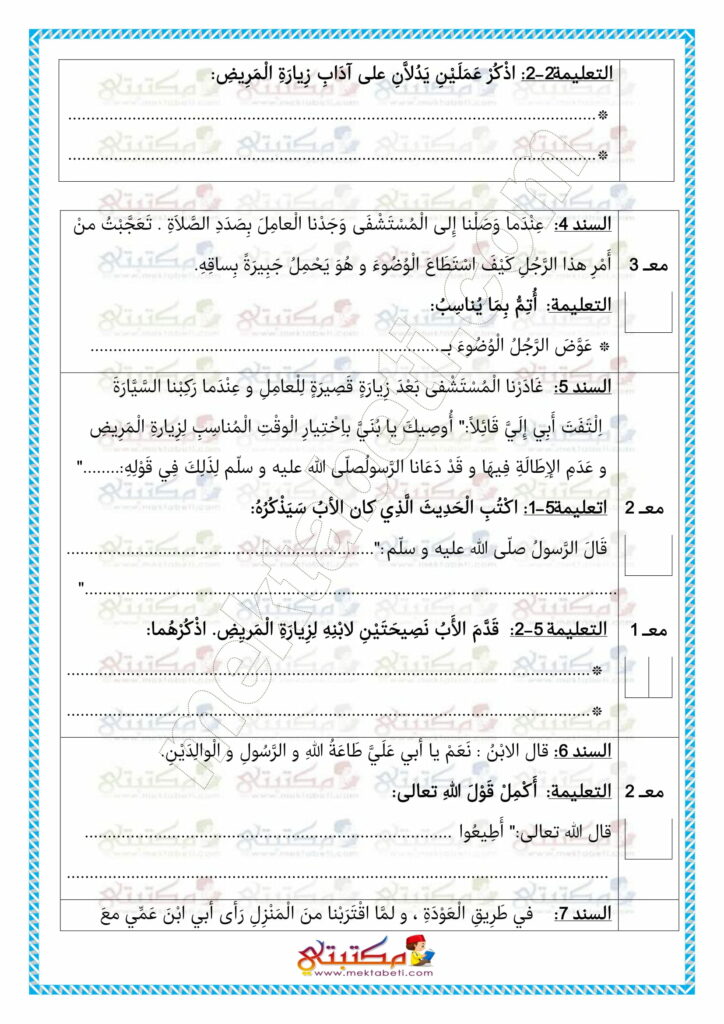 التعليمة2-2: اذْكُرْ عَمَلَيْنِ يَدُلاَّنِ على آدَابِ زِيارَةِ الْمَرِيضِ:
* ........................................................................
* ........................................................................
السند 4: عِنْدَما وَصَلْنا إلى الْمُسْتَشْفَى وَجَدْنا الْعامِلَ بِصَدَدِ الصَّلاَةِ . تَعَجَّبْتُ منْ
معـ 3
أَمْرِ هذا الرَّجُلِ كَيْفَ اسْتَطَاعَ الْوُضُوءَ و هُوَ يَحْمِلُ جَبِيرَةً بِساقِهِ.
التعليمة: أُتِمُّ بِمَا يُناسِبُ:
* عَوَّضَ الرَّجُلُ الْوُضُوءَ بـ................................................
السند 5: غَادَرْنا الْمُسْتَشْفى بَعْدَ زِيارَةٍ قَصِيرَةٍ لِلْعامِلِ و عِنْدَما رَكِبْنا السَّيَّارَةَ
اِلْتَفَتَ أَبِي إِلَيَّ قَائِلاً:" أُوصِيكَ يا بُنَيَّ باخْتِيارِ الْوقْتِ الْمُناسِبِ لِزِيارةِ الْمَرِيضِ
و عَدَمِ الإِطَالَةِ فِيهَا و قَدْ دَعَانا الرَّسولُصلّى الله عليه و سلّم لِذلِكَ فِي قَوْلِهِ:........"
معـ 2
اتعليمة5-1: اكْتُبِ الْحَدِيثَ الَّذِي كان الأبُ سَيَذْكُرُهُ:
قَالَ الرَّسولُ صلّى الله عليه و سلّم:".....................................................
........................................................................"
معـ 1
التعليمة 5-2: قَدَّمَ الأَبُ نَصِيحَتَيْنِ لابْنِهِ لِزِيارَةِ الْمَريِضِ. اذْكُرْهُما:
* ........................................................................
* ........................................................................
السند 6: قال الابْنُ : نَعَمْ يا أبي عَلَيَّ طَاعَةُ اللهِ و الرَّسُولِ و الْوالِدَيْنِ.
معـ 2
التعليمة: أَكْمِلْ قَوْلَ اللهِ تعالى:
قال الله تعالى:" أَطِيعُوا ................................................................
........................................................................
السند 7: في طَرِيقِ الْعَوْدَةِ ، و لمَّا اقْتَرَبْنا منَ الْمَنْزِلِ رَأى أبي ابْنَ عَمِّي معَ
مكتبتي
www.mektabeti.com
mektabeti.com